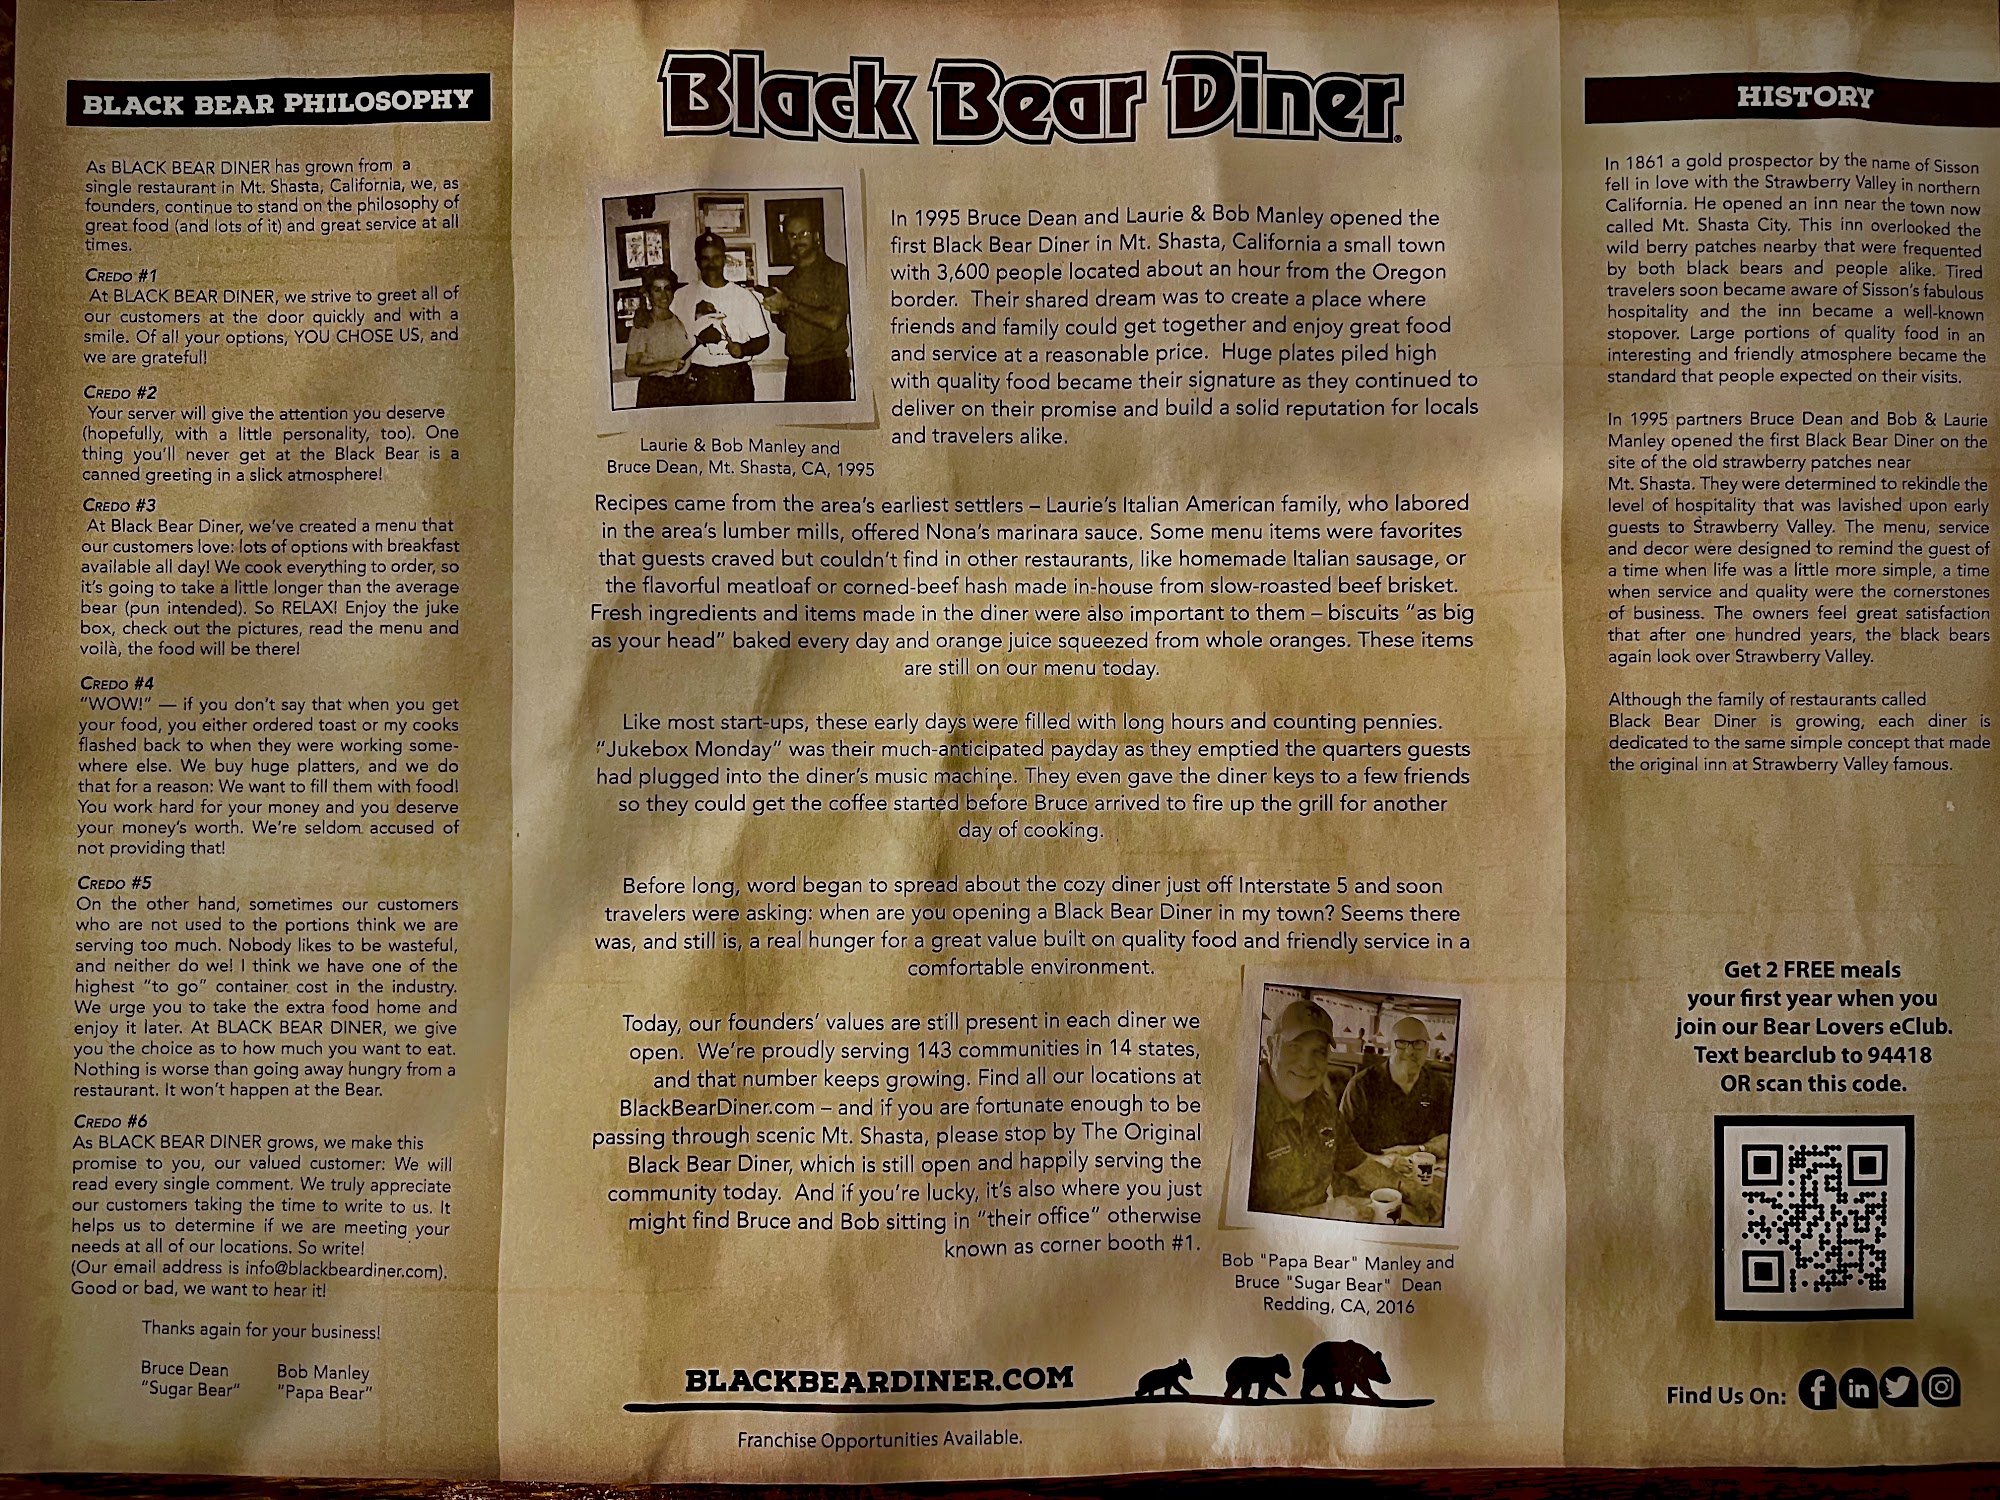 BLACK BEAR PHILOSOPHY
As BLACK BEAR DINER has grown from a
single restaurant in Mt. Shasta, California, we, as
founders, continue to stand on the philosophy of
great food (and lots of it) and great service at all
times.
CREDO #1
At BLACK BEAR DINER, we strive to greet all of
our customers at the door quickly and with a
smile. Of all your options, YOU CHOSE US, and
we are grateful!
CREDO #2
Your server will give the attention you deserve
(hopefully, with a little personality, too). One
thing you'll never get at the Black Bear is a
canned greeting in a slick atmosphere!
CREDO #3
At Black Bear Diner, we've created a menu that
our customers love: lots of options with breakfast
available all day! We cook everything to order, so
it's going to take a little longer than the average
bear (pun intended). So RELAX! Enjoy the juke
box, check out the pictures, read the menu and
voilà, the food will be there!
CREDO #4
"WOW!" — if you don't say that when you get
your food, you either ordered toast or my cooks
flashed back to when they were working some-
where else. We buy huge platters, and we do
that for a reason: We want to fill them with food!
You work hard for your money and you deserve
your money's worth. We're seldom accused of
not providing that!
CREDO #5
On the other hand, sometimes our customers
who are not used to the portions think we are
serving too much. Nobody likes to be wasteful,
and neither do we! I think we have one of the
highest "to go" container cost in the industry.
We urge you to take the extra food home and
enjoy it later. At BLACK BEAR DINER, we give
you the choice as to how much you want to eat.
Nothing is worse than going away hungry from a
restaurant. It won't happen at the Bear.
CREDO #6
As BLACK BEAR DINER grows, we make this
promise to you, our valued customer: We will
read every single comment. We truly appreciate
our customers taking the time to write to us. It
helps us to determine if we are meeting your
needs at all of our locations. So write!
(Our email address is info@blackbeardiner.com).
Good or bad, we want to hear it!
Thanks again for your business!
Bruce Dean Bob Manley
"Sugar Bear" "Papa Bear"
Black Bear Diner®
In 1995 Bruce Dean and Laurie & Bob Manley opened the
first Black Bear Diner in Mt. Shasta, California a small town
with 3,600 people located about an hour from the Oregon
border. Their shared dream was to create a place where
friends and family could get together and enjoy great food
and service at a reasonable price. Huge plates piled high
with quality food became their signature as they continued to
deliver on their promise and build a solid reputation for locals
and travelers alike.
Laurie & Bob Manley and
Bruce Dean, Mt. Shasta, CA, 1995
Recipes came from the area's earliest settlers – Laurie's Italian American family, who labored
in the area's lumber mills, offered Nona's marinara sauce. Some menu items were favorites
that guests craved but couldn't find in other restaurants, like homemade Italian sausage, or
the flavorful meatloaf or corned-beef hash made in-house from slow-roasted beef brisket.
Fresh ingredients and items made in the diner were also important to them – biscuits "as big
as your head" baked every day and orange juice squeezed from whole oranges. These items
are still on our menu today.
Like most start-ups, these early days were filled with long hours and counting pennies.
"Jukebox Monday" was their much-anticipated payday as they emptied the quarters guests
had plugged into the diner's music machine. They even gave the diner keys to a few friends
so they could get the coffee started before Bruce arrived to fire up the grill for another
day of cooking.
Before long, word began to spread about the cozy diner just off Interstate 5 and soon
travelers were asking: when are you opening a Black Bear Diner in my town? Seems there
was, and still is, a real hunger for a great value built on quality food and friendly service in a
comfortable environment.
Today, our founders' values are still present in each diner we
open. We're proudly serving 143 communities in 14 states,
and that number keeps growing. Find all our locations at
BlackBearDiner.com – and if you are fortunate enough to be
passing through scenic Mt. Shasta, please stop by The Original
Black Bear Diner, which is still open and happily serving the
community today. And if you're lucky, it's also where you just
might find Bruce and Bob sitting in "their office" otherwise
known as corner booth #1.
Bob "Papa Bear" Manley and
Bruce "Sugar Bear" Dean
Redding, CA, 2016
BLACKBEARDINER.COM
Franchise Opportunities Available.
HISTORY
In 1861 a gold prospector by the name of Sisson
fell in love with the Strawberry Valley in northern
California. He opened an inn near the town now
called Mt. Shasta City. This inn overlooked the
wild berry patches nearby that were frequented
by both black bears and people alike. Tired
travelers soon became aware of Sisson's fabulous
hospitality and the inn became a well-known
stopover. Large portions of quality food in an
interesting and friendly atmosphere became the
standard that people expected on their visits.
In 1995 partners Bruce Dean and Bob & Laurie
Manley opened the first Black Bear Diner on the
site of the old strawberry patches near
Mt. Shasta. They were determined to rekindle the
level of hospitality that was lavished upon early
guests to Strawberry Valley. The menu, service
and decor were designed to remind the guest of
a time when life was a little more simple, a time
when service and quality were the cornerstones
of business. The owners feel great satisfaction
that after one hundred years, the black bears
again look over Strawberry Valley.
Although the family of restaurants called
Black Bear Diner is growing, each diner is
dedicated to the same simple concept that made
the original inn at Strawberry Valley famous.
Get 2 FREE meals
your first year when you
join our Bear Lovers eClub.
Text bearclub to 94418
OR scan this code.
Find Us On: